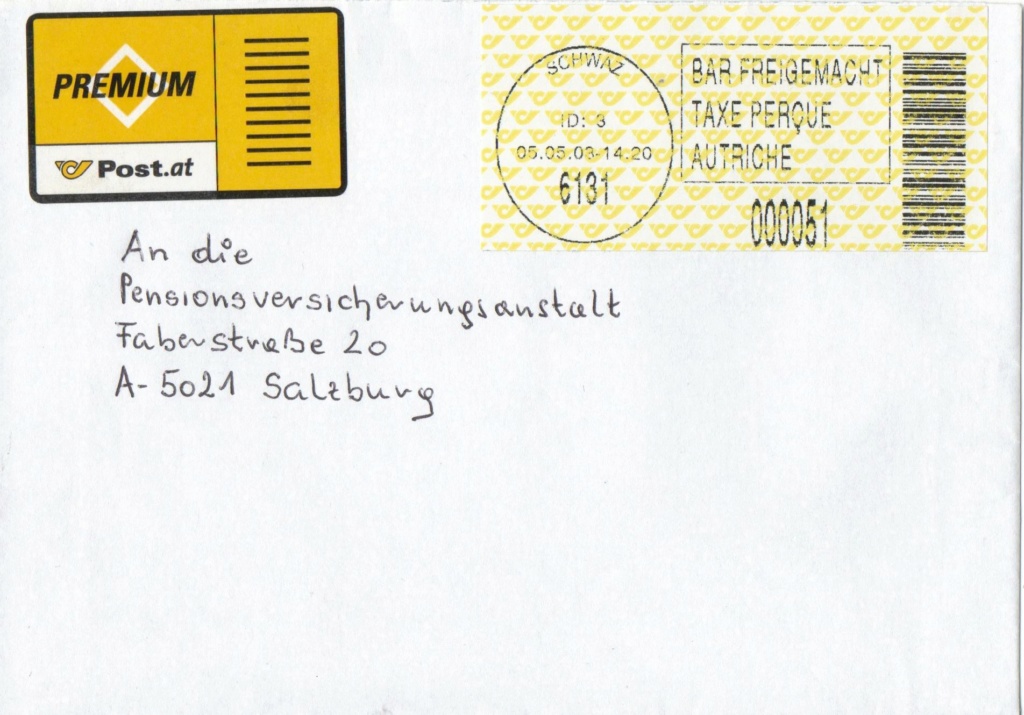 PREMIUM
Post.at
SCHWAZ
ID: 3
05.05.03-14.20
6131
BAR FREIGEMACHT
TAXE PERÇUE
AUTRICHE
000051
An die
Pensionsversicherungsanstalt
Faberstraße 20
A-5021 Salzburg